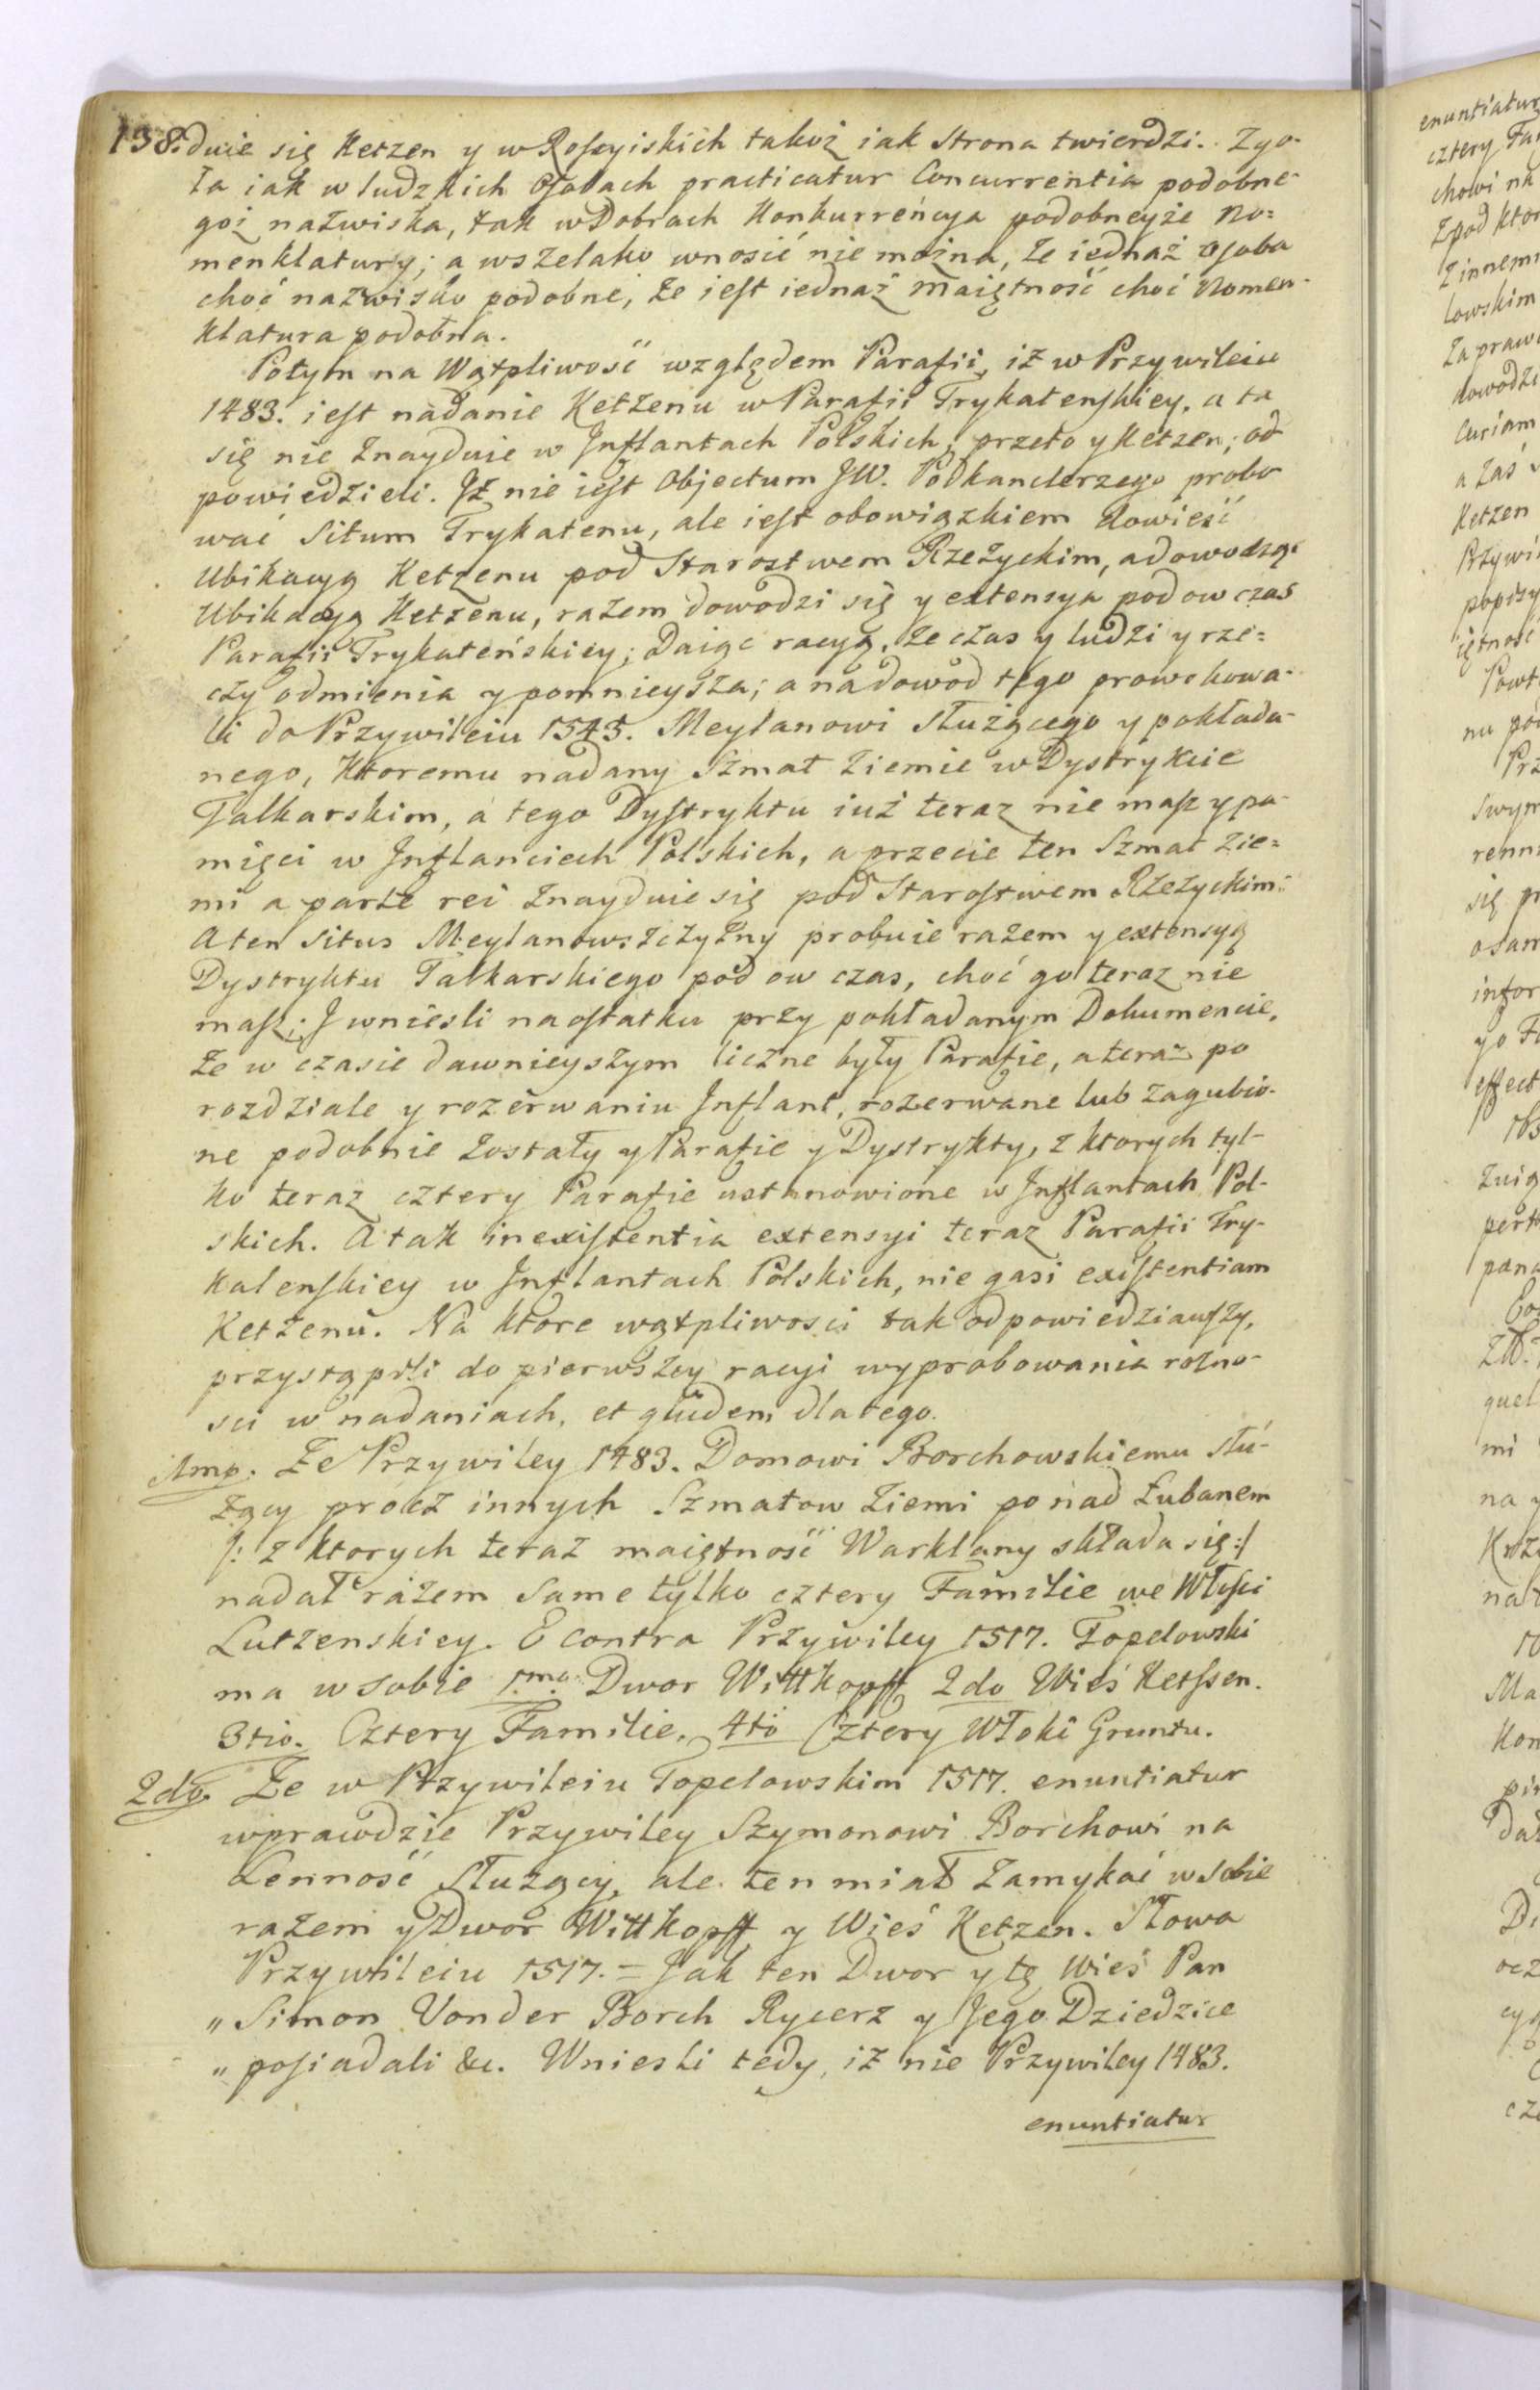 138. duie się Ketzen y w Rossyiskich takoż iak Strona twierdzi. Zgo-
ła iak w ludzkich osobach practicatur Concurrentia podobne-
goż nazwiska, tak w Dobrach Konkurrencya podobneyże No=
menklatury; a wszelako wnosić nie można, że iednaż osoba
choć nazwisko podobne, że iest iednaż Maiętność choć Nomen-
klatura podobna.
Potym na Wątpliwość względem Parafii, iż w Przywileiu
1483. iest nadanie Ketzenu w Parafii Trykatenskiey, a ta
się nie znayduie w Jnflantach Polskich, przeto y Ketzen; od
powiedzieli. Jż nie iest Objectum JW. Podkanclerzego probo
wać Situm Trykatenu, ale iest obowiązkiem dowieść
Ubikacyą Ketzenu pod Starostwem Rzeżyckim, a dowodząc
Ubikacyą Ketzenu, razem dowodzi się y extensya pod ow czas
Parafii Trykateńskiey; Daiąc racyą, że czas y ludzi y rze=
czy odmienia y pomnieysza; a na dowod tego prowokowa-
li do Przywileiu 1545. Meylanowi służącego y pokłada-
nego, Ktoremu nadany Szmat Ziemie w Dystrykcie
Talkarskim, a tego Dystryktu iuż teraz nie masz y pa-
mięci w Jnflanciech Polskich, a przecie ten Szmat Zie=
mi a parte rei znayduie się pod Starostwem Rzeżyckim:
A ten situs Meylanowszczyzny probuie razem y extensyą
Dystryktu Talkarskiego pod ow czas, choć go teraz nie
masz; J wniesli na ostatku przy pokładanym Dokumencie,
że w czasie dawnieyszym liczne były Parafie, a teraz po
rozdziale y rozerwaniu Jnflant, rozerwane lub zagubio-
ne podobnie zostały y Parafie y Dystrykty, z ktorych tyl-
ko teraz cztery Parafie ustanowione w Jnflantach Pol-
skich. A tak inexistentia extensyi teraz Parafii Try-
katenskiey w Jnflantach Polskich, nie gasi existentiam
Ketzenu. Na ktore wątpliwosci tak odpowiedziawszy,
przystąpili do pierwszey racyi wyprobowania rożno-
sci w nadaniach, et quidem dlatego.
1mo. Że Przywiley 1483. Domowi Borchowskiemu słu-
żący procz innych Szmatow Ziemi ponad Łubanem
/: z ktorych teraz maiętność Warklany składa się :/
nadał razem same tylko cztery Familie we Włosci
Lutzenskiey. E contra Przywiley 1517. Topelowski
ma w sobie 1mo. Dwor Wittkopff 2do Wieś Ketssen.
3tio. Cztery Familie. 4to Cztery Włoki Gruntu.
2do. Że w Przywileiu Topelowskim 1517. enuntiatur
wprawdzie Przywiley Szymonowi Borchowi na
Lenność służący, ale ten miał zamykać w sobie
razem y Dwor Wittkopff y Wieś Ketzen. Słowa
Przywileiu 1517. = Jak ten Dwor y tę Wieś Pan
„ Simon Vonder Borch Rycerz y Jego Dziedzice
„ posiadali &c. Wniesli tedy, iż nie Przywiley 1483.
enuntiatur